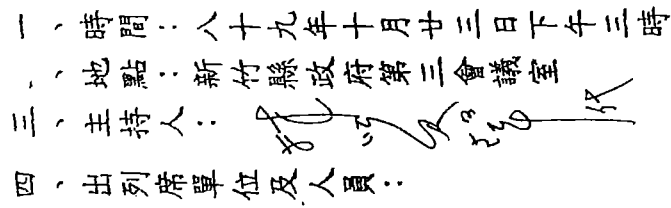 一、時間：八十九年十月廿三日下午三時
、地點：新竹縣政府第三會議室
三、主持人：
四、出列席單位及人員：